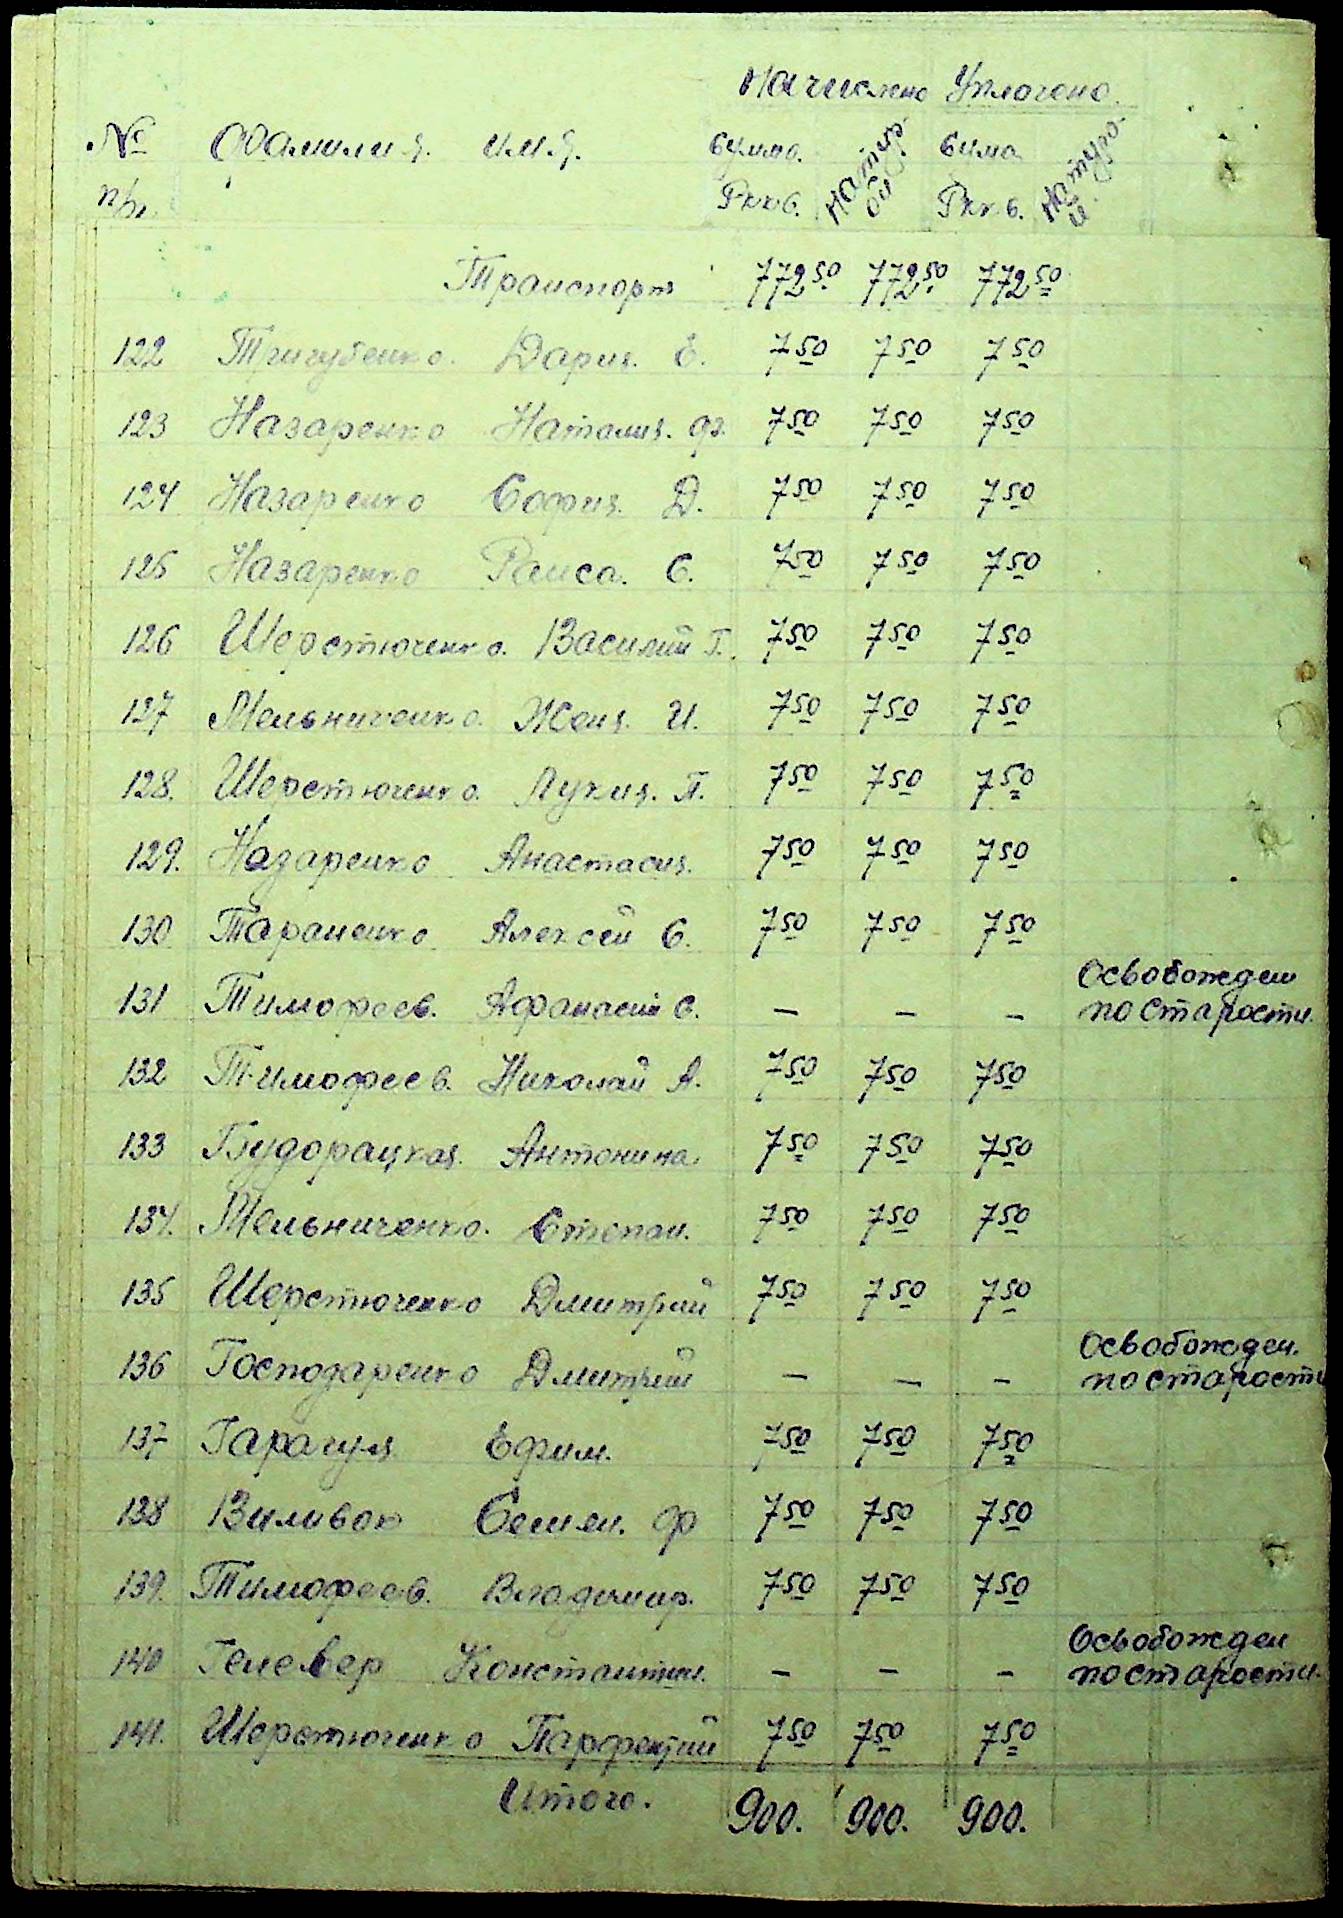 Начислено Уплочено
№ Фамилия. имя. сумма. Натур- сумма Натуро-
п/п. Ркк в. ой Ркк в. й.
Транспорт 772 50 772 50 772 50
122 Тригубенко. Дария. Е. 7 50 7 50 7 50
123 Назаренко Наталия. Ф. 7 50 7 50 7 50
124 Назаренко София. Д. 7 50 7 50 7 50
125 Назаренко Раиса. С. 7 50 7 50 7 50
126 Шерстюченко. Василий Г. 7 50 7 50 7 50
127 Мельниченко. Женя. И. 7 50 7 50 7 50
128. Шерстюченко. Лукия. П. 7 50 7 50 7 50
129. Назаренко Анастасия. 7 50 7 50 7 50
130 Тараненко Алексей С. 7 50 7 50 7 50
131 Тимофеев. Афанасий С. – – – Освобожден
по старости.
132 Тимофеев. Николай А. 7 50 7 50 7 50
133 Будорацкая. Антонина. 7 50 7 50 7 50
134. Мельниченко. Степан. 7 50 7 50 7 50
135 Шерстюченко Дмитрий 7 50 7 50 7 50
136 Господаренко Дмитрий – – – Освобожден.
по старости
137 Гарагуля Ефим. 7 50 7 50 7 50
138 Виливок Семен. Ф 7 50 7 50 7 50
139. Тимофеев. Владимир. 7 50 7 50 7 50
140 Гелевер Константин. – – – Освобожден
по старости.
141. Шерстюченко Парфентий 7 50 7 50 7 50
Итого. 900. 900. 900.